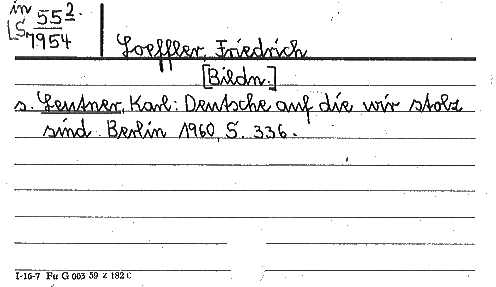 in
LS 55².
7954
Loeffler, Friedrich
[Bildn.]
s. Leutner, Karl: Deutsche auf die wir stolz
sind. Berlin 1960, S. 336.
I-16-7 Fu G 003 59 Z 182 C